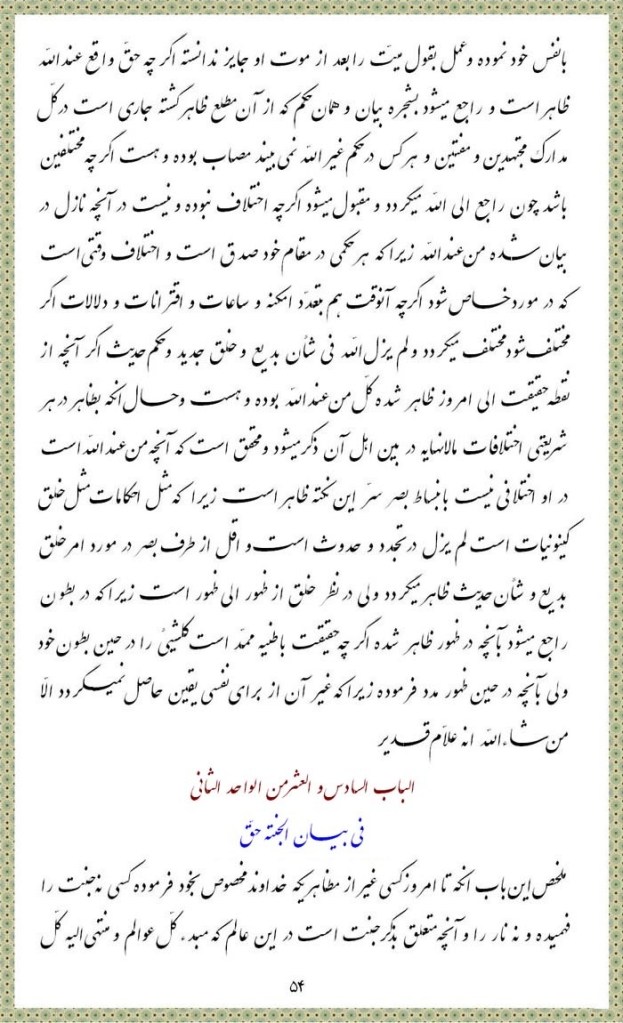 بانفس خود نموده و عمل بقول میّت را بعد از موت او جایز ندانسته اگر چه حقّ واقع عندالله
ظاهر است و راجع میشود بشجره بیان و همان حکم که از آن مطلع ظاهر گشته جاری است در کلّ
مدارک مجتهدین و مفتین و هر کس در حکم غیر الله نمی بیند مصاب بوده و هست اگر چه مختلفین
باشد چون راجع الی الله میگردد و مقبول میشود اگرچه اختلاف نبوده و نیست در آنچه نازل در
بیان شده من عندالله زیرا که هر حکمی در مقام خود صدق است و اختلاف وقتی است
که در مورد خاص شود اگرچه آنوقت هم بتعدّد امکنه و ساعات و اقترانات و دلالات اگر
مختلف شود مختلف میگردد و لم یزل الله فی شأن بدیع و خلق جدید و حکم حدیث اگر آنچه از
نقطه حقیقت الی امروز ظاهر شده کلّ من عندالله بوده و هست و حال آنکه بظاهر در هر
شریعتی اختلافات مالانهایه در بین اهل آن ذکر میشود و محقق است که آنچه من عندالله است
در او اختلافی نیست بانبساط بصر سرّ این نکته ظاهر است زیرا که مثل احکامات مثل خلق
کینونیات است لم یزل در تجدد و حدوث است و اقل از طرف بصر در مورد امر خلق
بدیع و شأن حدیث ظاهر میگردد ولی در نظر خلق از ظهور الی ظهور است زیرا که در بطون
راجع میشود بآنچه در ظهور ظاهر شده اگر چه حقیقت باطنیه ممدّ است کلشیئ را در حین بطون خود
ولی بآنچه در حین ظهور مدد فرموده زیرا که غیر آن از برای نفسی یقین حاصل نمیگردد الّا
من شاءالله انه علّام قدیر
الباب السادس و العشر من الواحد الثانی
فی بیان الجنّة حقّ
ملخص این باب آنکه تا امروز کسی غیر از مظاهریکه خداوند مخصوص بخود فرموده کسی نه جنت را
فهمیده و نه نار را و آنچه متعلق بذکر جنت است در این عالم که مبدء کلّ عوالم و منتهی الیه کلّ
۵۴